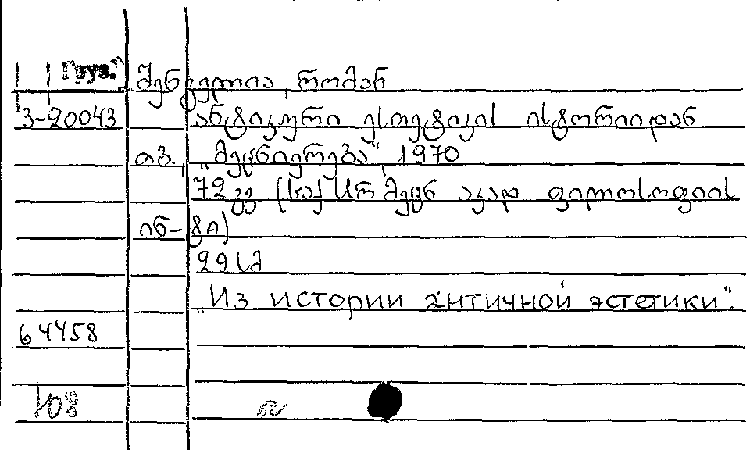 Груз. შენგელია, რომან
3-20043 ანტიკური ესთეტიკის ისტორიიდან
თბ., "მეცნიერება", 1970
72 გვ (საქ სსრ მეცნ აკად ფილოსოფიის
ინ-ტი)
"Из истории античной эстетики".
64458
108